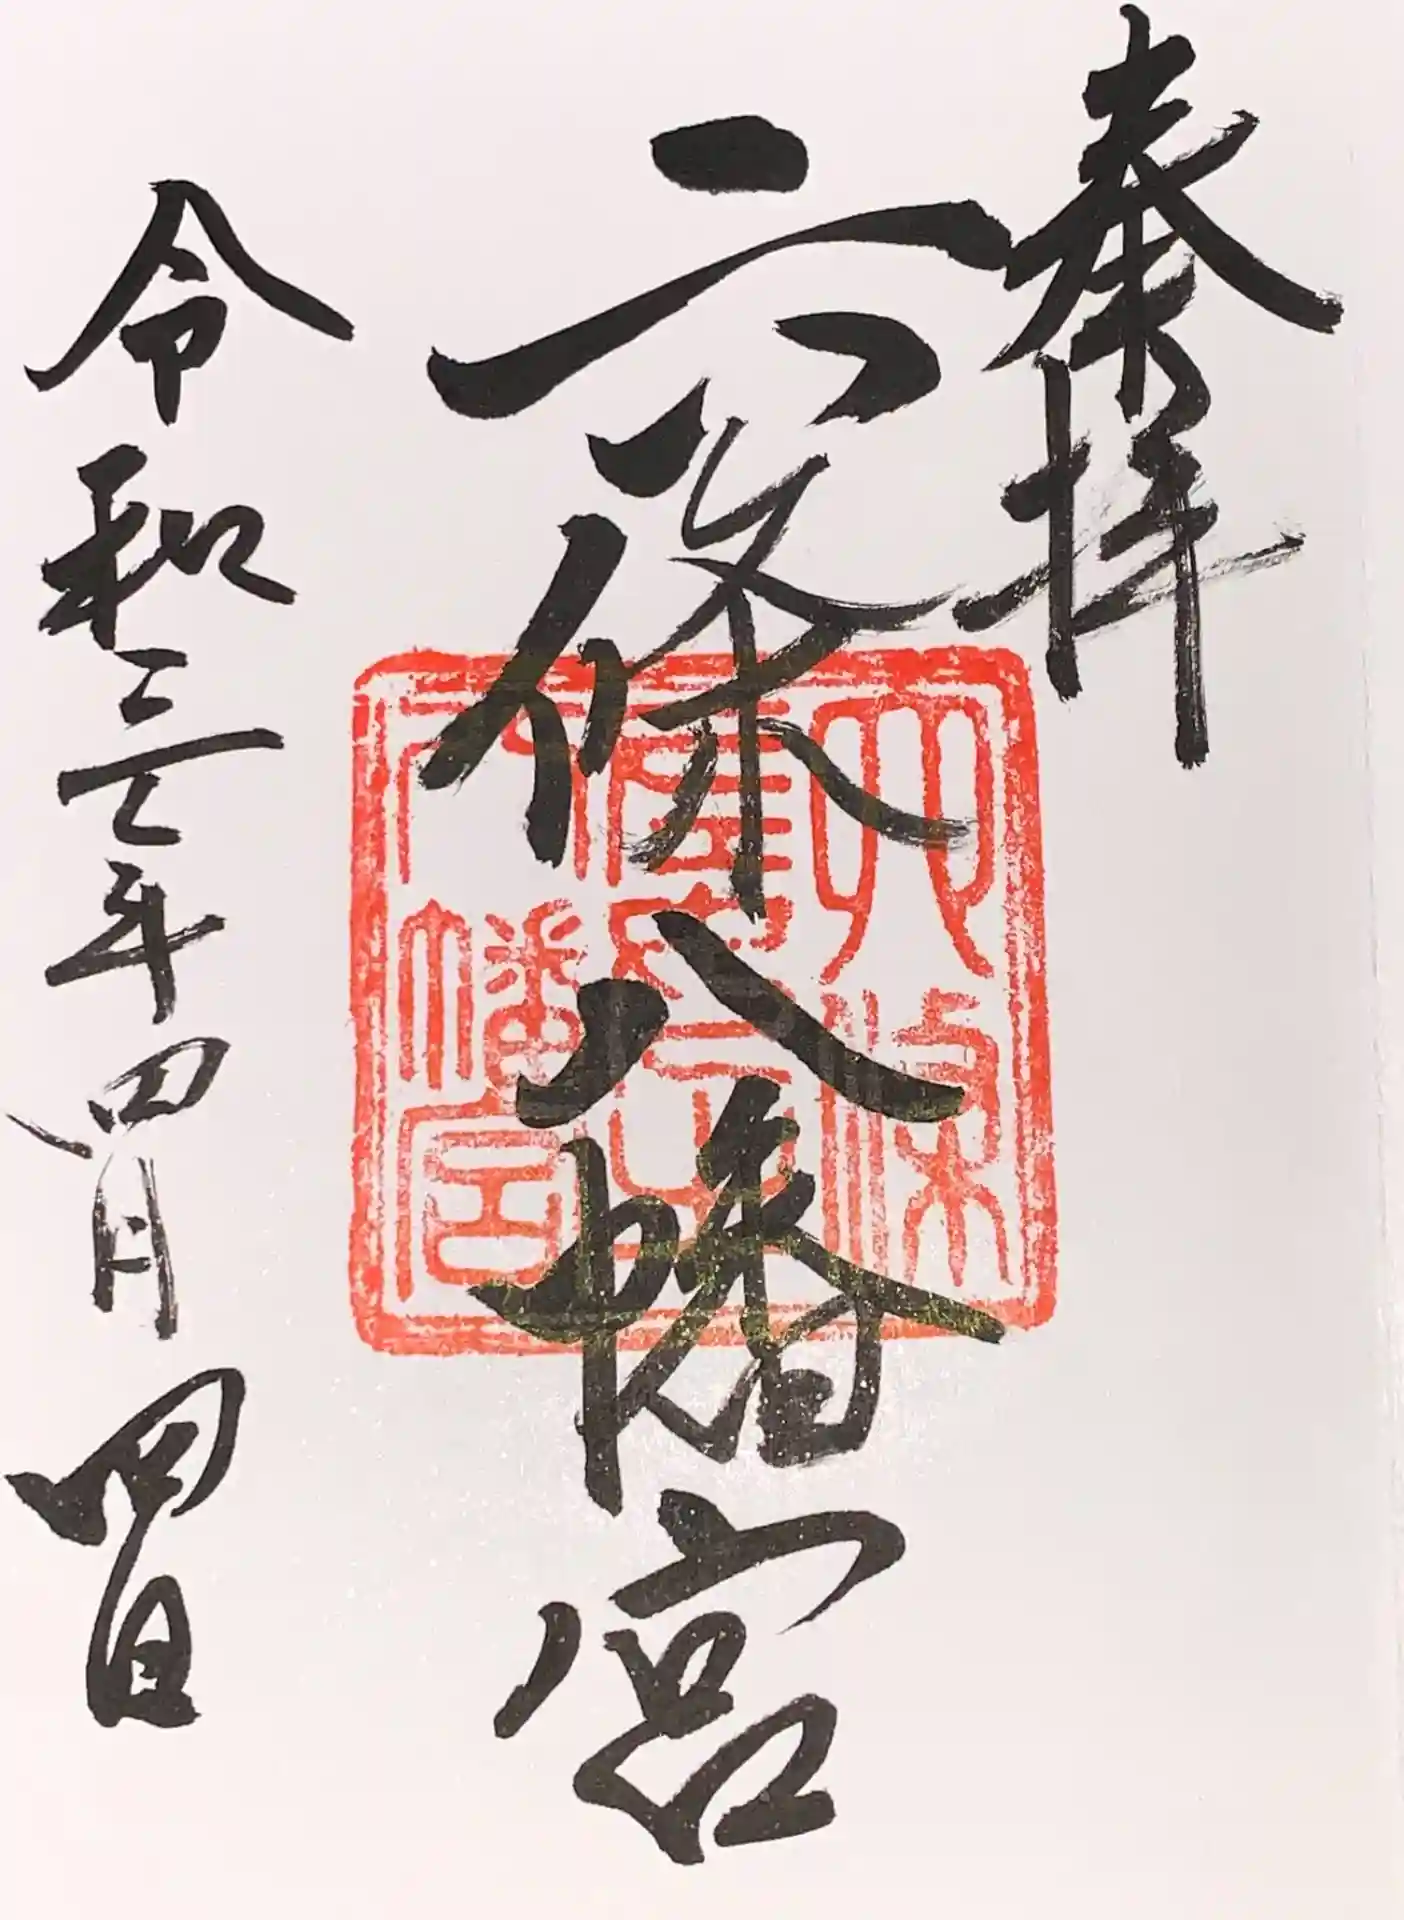 奉拝
六條八幡宮
令和三年四月四日
六條
八幡宮